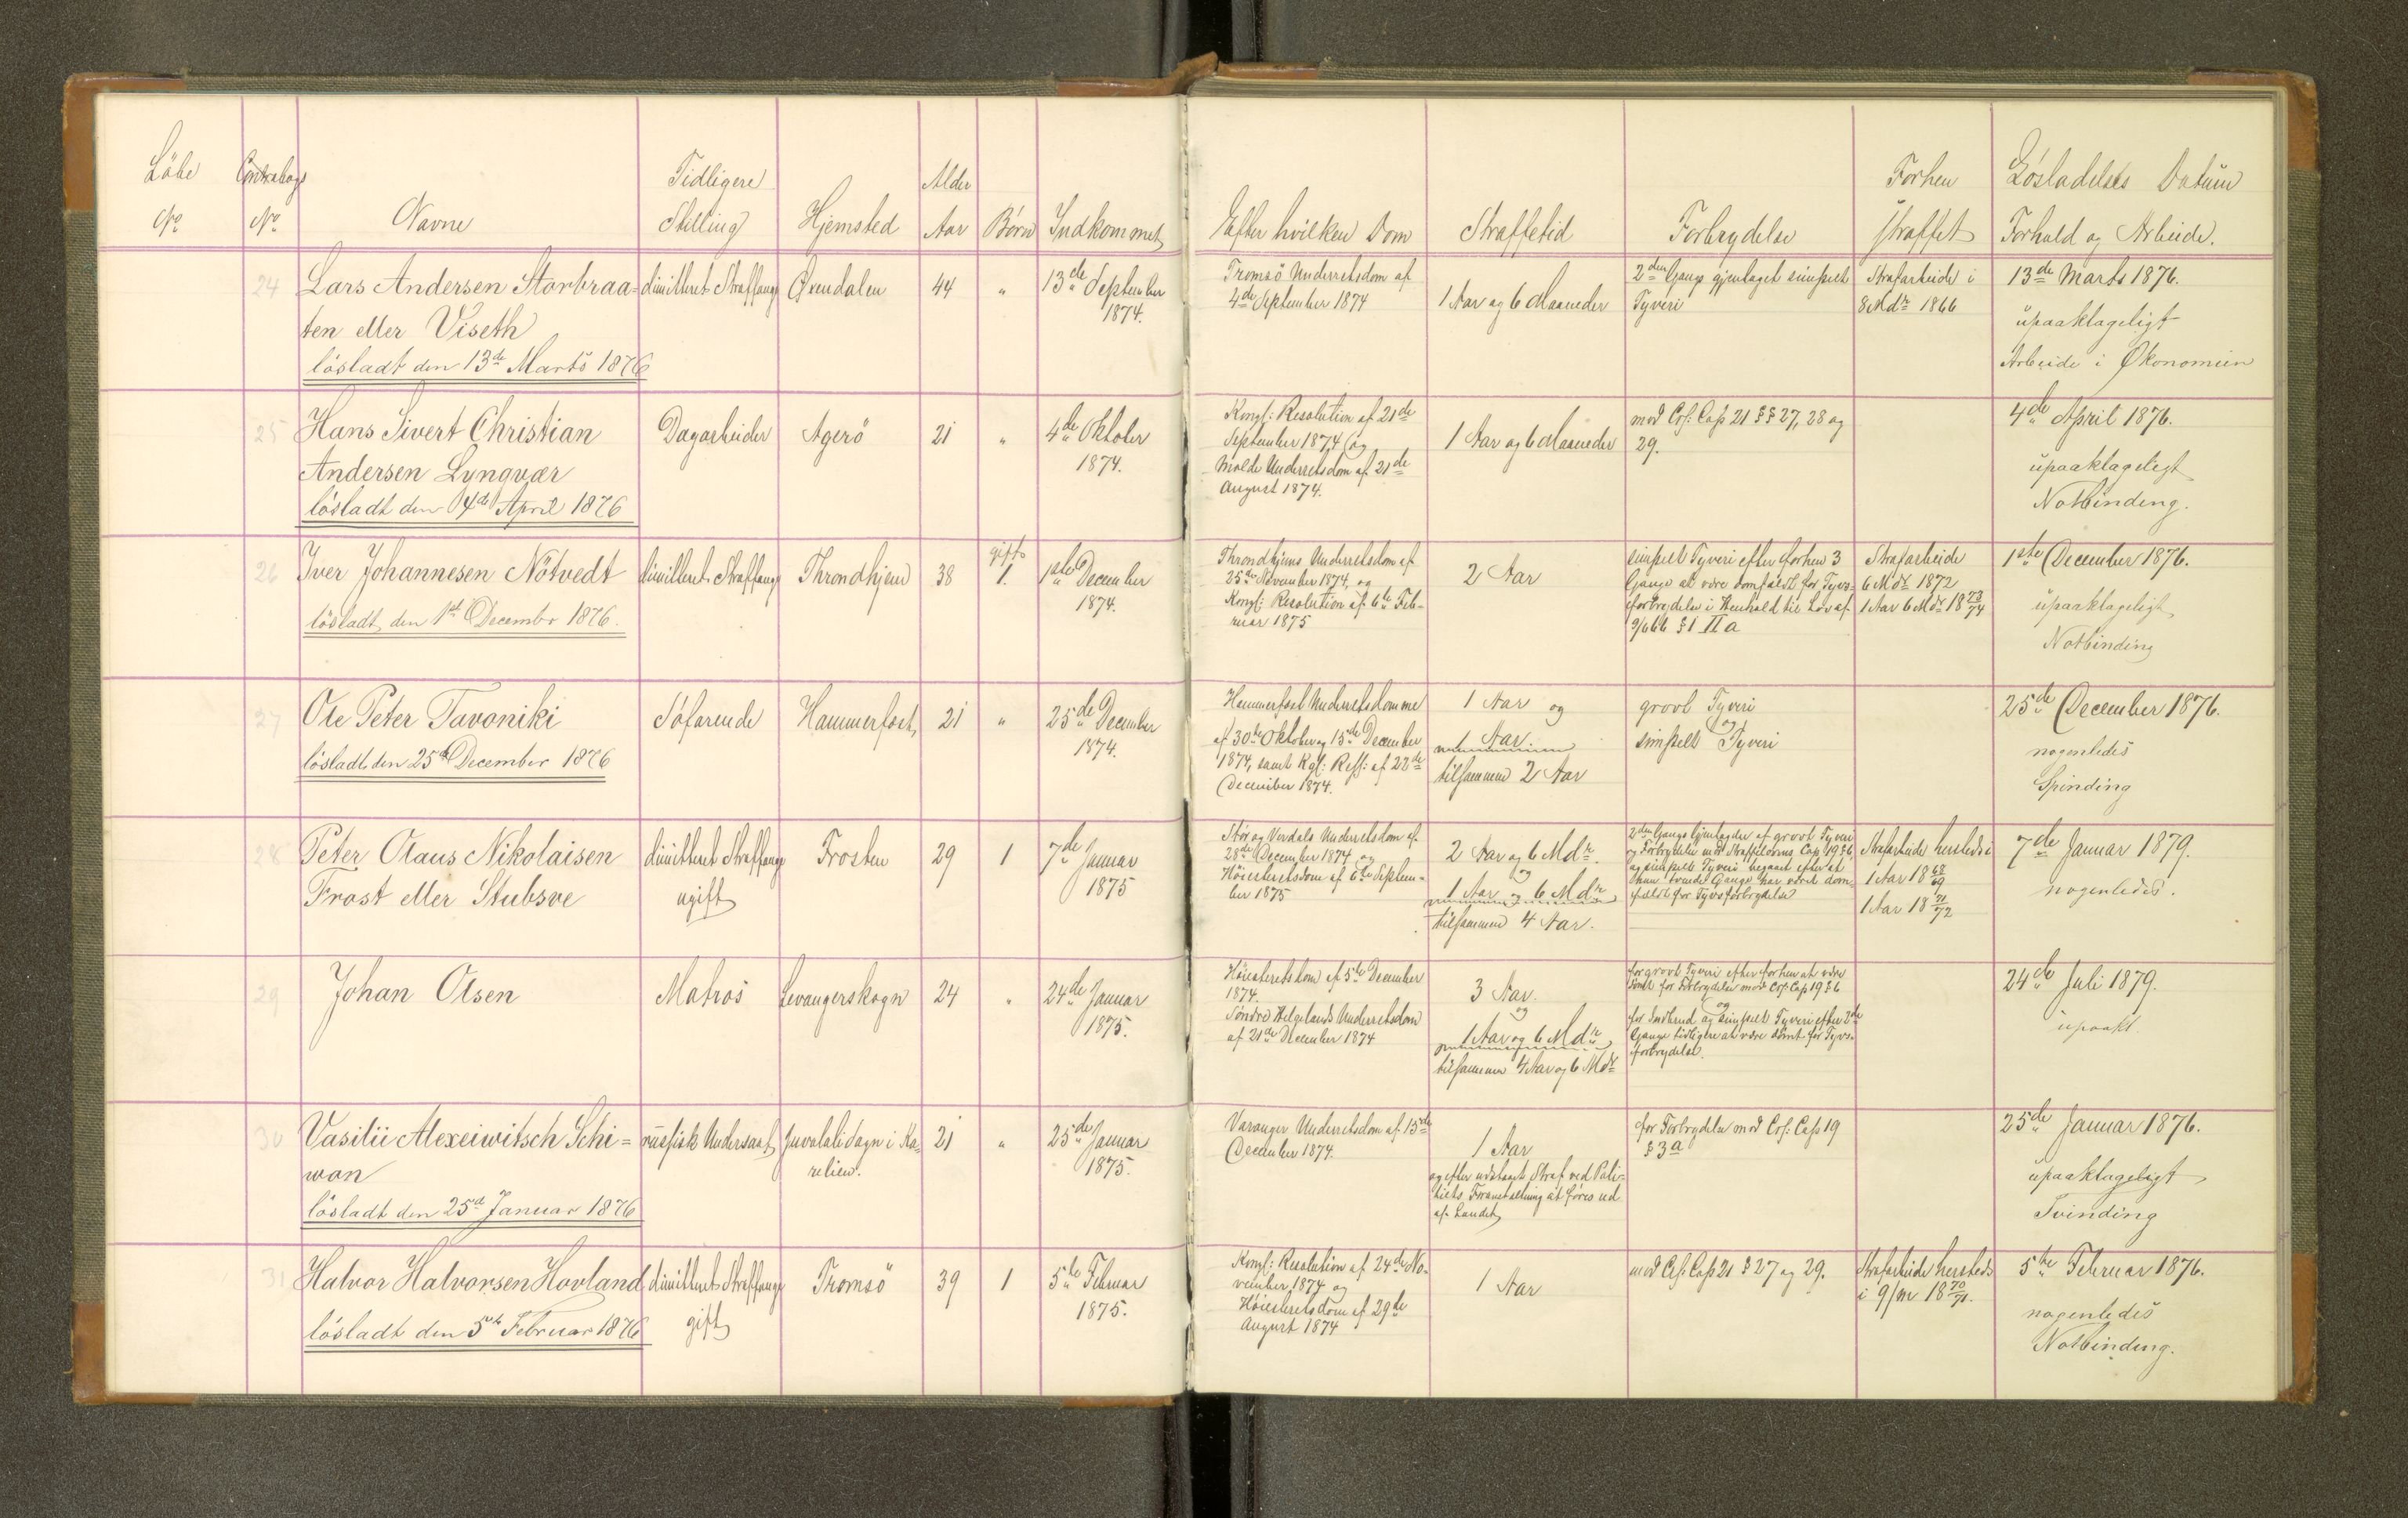 Löbe
No
Contrabogs
No
Navne
Tidligere
Stilling
Hjemsted
Alder
Aar
Börn
Indkommet
Efter hvilken Dom
Straffetid
Forbrydelse
Forhen
straffet
Lösladelses Datum
Forhold og Arbeide.
24
Lars Andersen Storbraa=
ten eller Viseth
lösladt den 13de Marts 1876
dimitteret Straffange
Øxendalen
44
"
13de September
1874.
Tromsö Underretsdom af
4de September 1874
1 Aar og 6 Maaneder
2den Gang gjentaget simpelt
Tyveri
Strafarbeide i
8 Mdr 1866
13de Marts 1876.
upaaklageligt
Arbeide i Økonomien
25
Hans Sivert Christian
Andersen Lyngvær
lösladt den 4de April 1876
Dagarbeider
Agerö
21
"
4de Oktober
1874.
Kongl: Resolution af 21de
September 1874 og
Molde Underretsdom af 21de
August 1874.
1 Aar og 6 Maaneder
mod Crf: Cap 21 §§ 27, 28 og
29.
4de April 1876.
upaaklageligt
Notbinding.
26
Iver Johannesen Nötvedt
lösladt den 1st December 1876.
dimitteret Straffange
Throndhjem
38
gift
1.
1ste December
1874.
Throndhjems Underretsdom af
25de November 1874, og
Kongl: Resolution af 6te Feb-
ruar 1875
2 Aar
simpelt Tyveri efter forhen 3
Gange at være domfældt for Tyvs-
forbrydelse i Henhold til Lov af
9/6 66 § 1 II a
Strafarbeide
6 Mdr 1872
1 Aar 6 Mdr 18 73/74
1ste December 1876.
upaaklageligt
Notbinding
27
Ole Peter Tavoniki
lösladt den 25de December 1876
Söfarende
Hammerfest
21
"
25de December
1874.
Hammerfest Underretsdomme
af 30te Oktober og 15de December
1874, samt Kgl: Ress: af 22de
December 1874.
1 Aar og
1 Aar
tilsammen 2 Aar
grovt Tyveri
og
simpelt Tyveri
25de December 1876.
nogenledes
Spinding
28
Peter Olaus Nikolaisen
Frost eller Stubsve
dimitteret Straffange
ugift
Frosten
29
1
7de Januar
1875
Stör og Verdals Underretsdom af
28de December 1874 og
Höiesteretsdom af 6te Septem-
ber 1875
2 Aar og 6 Mdr.
og
1 Aar og 6 Mdr
tilsammen 4 Aar.
2den Gangs Gjentagelse af grovt Tyveri
og Forbrydelse mod Straffelovens Cap 19 § 6,
og simpelt Tyveri begaaet efter at
han trende Gange har været dom-
fældt for Tyvsforbrydelse
Strafarbeide hersteds i
1 Aar 18 68/69
1 Aar 18 71/72
7de Januar 1879.
nogenledes.
29
Johan Olsen
Matros
Levangerskogn
24
"
24de Januar
1875.
Höiesteretsdom af 5te December
1874.
Söndre Helgelands Underretsdom
af 21de December 1874
3 Aar.
og
1 Aar og 6 Mdr
tilsammen 4 Aar og 6 Mdr
for grovt Tyveri efter forhen at være
dömt for Forbrydelse mod Crf: Cap 19 § 6
og
for Indbrud og simpelt Tyveri efter 2de
Gange tidligere at være dömt for Tyvs-
forbrydelse.
24de Juli 1879.
upaakl.
30
Vasilii Alexeiwitsch Schi=
wan
lösladt den 25d Januar 1876
russisk Undersaat
Juvalalidagn i Ka-
relien.
21
"
25de Januar
1875.
Varanger Underretsdom af 15de
December 1874.
1 Aar
og efter udstaaet Straf ved Poli-
tiets Foranstaltning at föres ud
af Landet
for Forbrydelse mod Crf: Cap 19
§ 3 a
25de Januar 1876.
upaaklageligt
Tvinding
31
Halvor Halvorsen Hovland
lösladt den 5te Februar 1876
dimitteret Straffange
gift
Tromsö
39
1
5te Februar
1875.
Kongl: Resolution af 24de No-
vember 1874 og
Höiesteretsdom af 29de
August 1874
1 Aar
mod Crf: Cap 21 § 27 og 29.
Strafarbeide hersteds
i 9/m 18 70/71.
5te Februar 1876.
nogenledes
Notbinding.